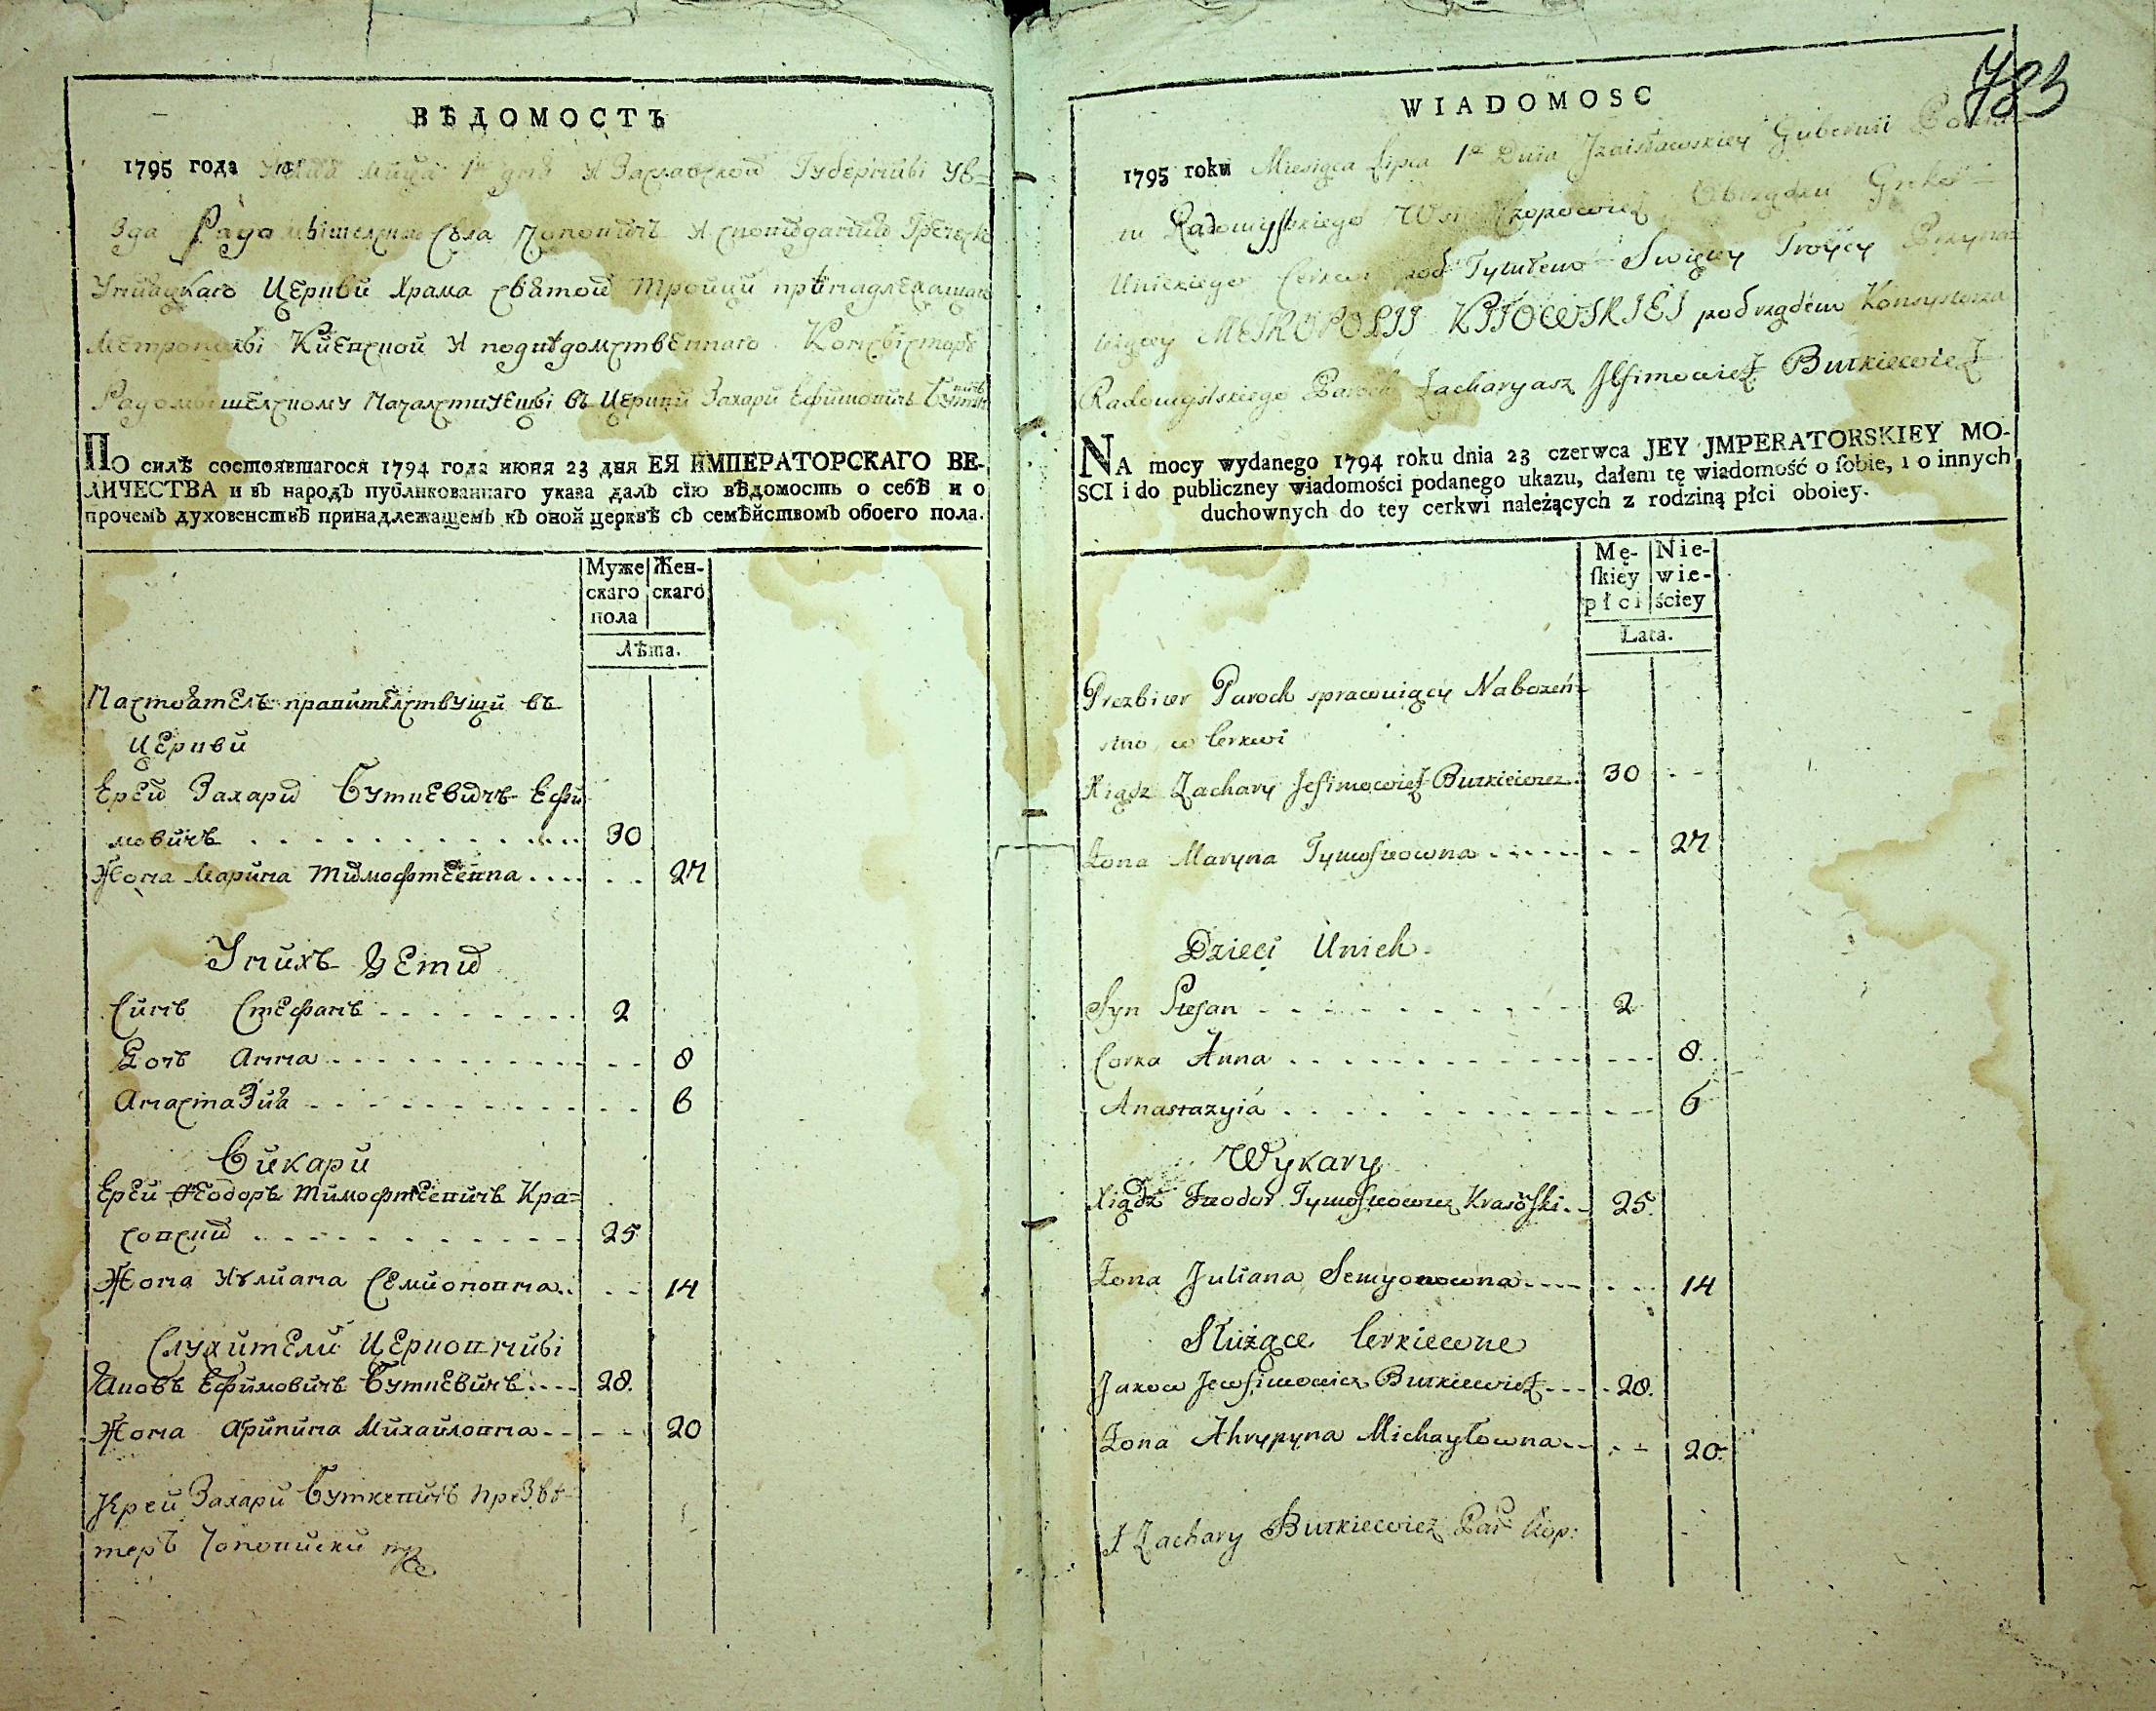 ВѢДОМОСТЬ
1795 года мца 1го дня Изаславской Губерніи Уѣ-
зда Радомышелского Села и сповѣданія Греческо
Униацкаго Церкви Храма святой Тройци принадлежащаго
Метрополіи Киевской и подвѣдомственнаго
Радомышелскому в Церкви Захари Ефимовичъ
По силѣ состоявшагося 1794 года июня 23 дня ЕЯ ИМПЕРАТОРСКАГО ВЕ-
ЛИЧЕСТВА и въ народъ публикованнаго указа далъ сїю вѣдомость о себѣ и о
прочемъ духовенствѣ принадлежащемъ къ оной церквѣ съ семѣйствомъ обоего пола.
Муже Жен-
скаго скаго
пола
Лѣта.
Настоятель правителствущи въ
Церкви
Ерей Захарий Буткевичъ Ефи
мовичъ 30
Жона Марина Тимофтеевна 27
У нихъ Дети
Синъ Стефанъ 2
Дочъ Анна 8
Анастазия 6
Викари
Ерей Феодоръ Тимофтеевичъ Кра=
совский 25
Жона Иулиана Семионовна 14
Служители Церковнии
Яковъ Ефимовичъ Буткевичъ 28.
Жона Агрипина Михайловна 20
Иерей Захари Буткевичъ Презви-
теръ
783
WIADOMOSC
1795 roku Miesiąca Lipca 1o Dnia Jzaisławskiey Gubernii Powia-
tu Radomyslskiego Wsi Obrządku Greko-
Unickiego Cerkwi pod Tytułem Swięтey Troycy Przyna-
leżącey METROPOLII KIJOWSKIEJ pod rządem Konsystorza
Radomyslskiego Paroch Zacharyasz Jefimowicz Butkiewicz
NA mocy wydanego 1794 roku dnia 23 czerwca JEY JMPERATORSKIEY MO-
SCI i do publiczney wiadomości podanego ukazu, dałem tę wiadomość o ſobie, i o innych
duchownych do tey cerkwi należących z rodziną płci oboiey.
Mę- Nie-
ſkiey wie-
płci ściey
Lata.
Prezbiter Paroch sprawuiący Nabożeń-
stwo w Cerkwi
Xiądz Zachary Jefimowicz Butkiewicz 30
Żona Maryna Tymofieowna 27
Dzieci Unich
Syn Stefan 2
Corka Anna 8.
Anastazyiá 6
Wykary
Xiądz Teodor Tymofieowicz Krasoſski 25.
Żona Juliana Semyonowna 14
Służące Cerkiewne
Jakow Jewfimowicz Butkiewicz 28.
Żona Ahrypyna Michayłowna 20.
J Zachary Butkiewicz Par Kop: